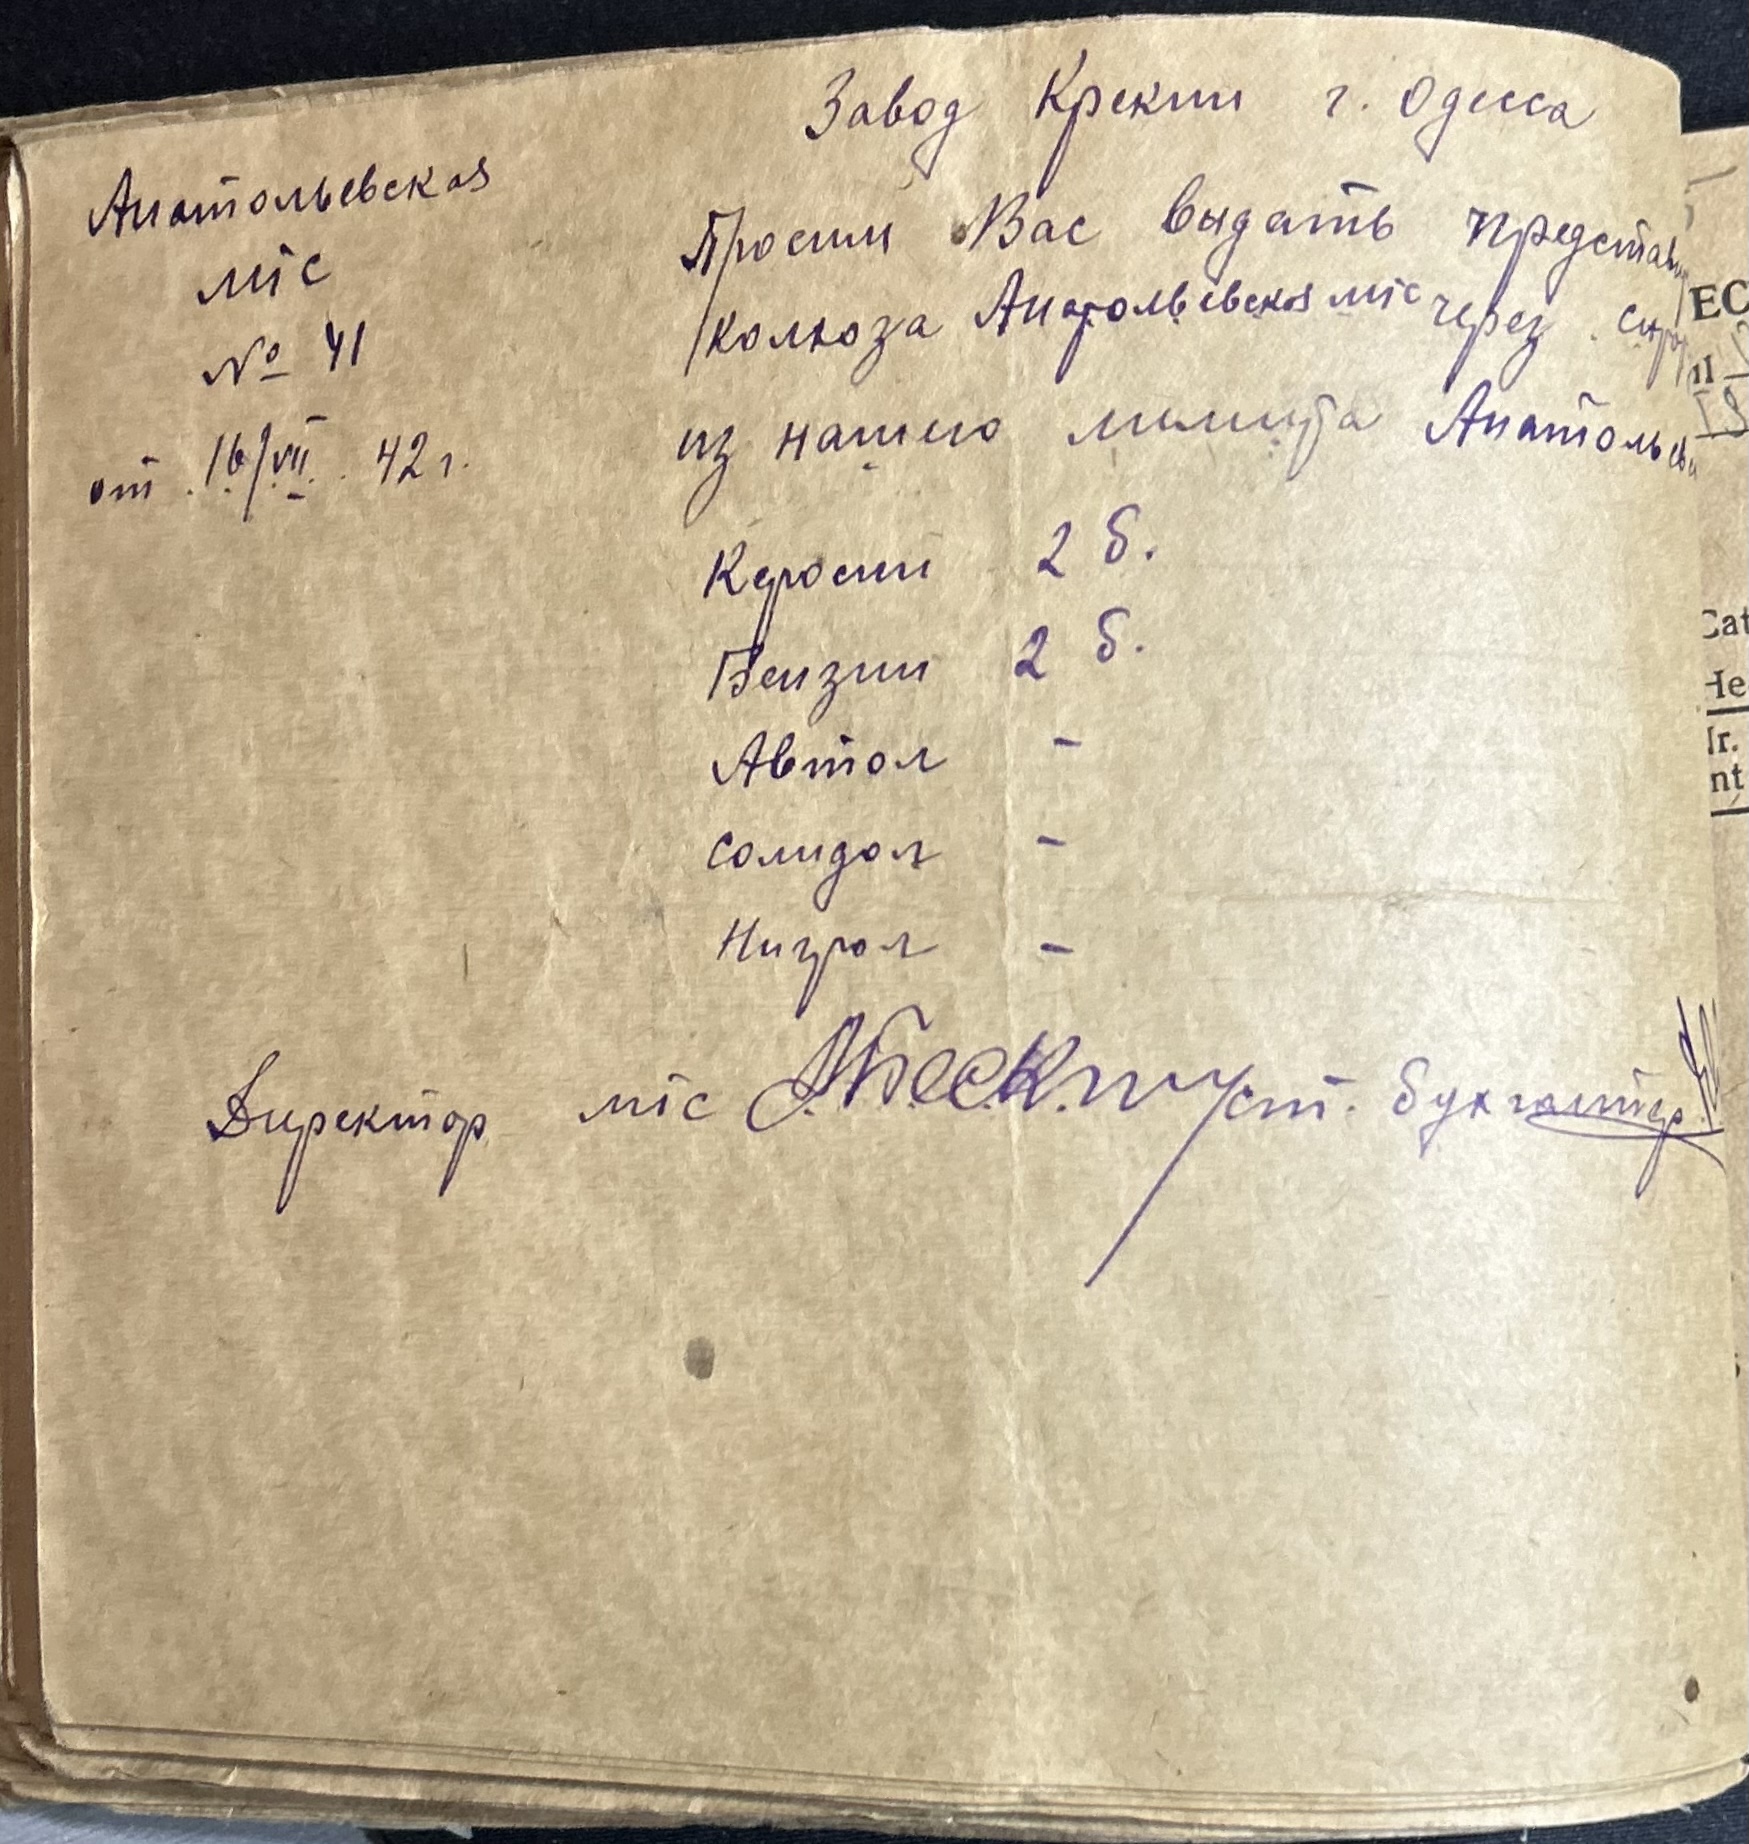 Завод Крекин г. Одесса
Анатольевская
мтс
№ 41
от 16/VII. 42 г.
Просим Вас выдать
колхоза Анатольевская мтс через
из нашего лимита
Керосин 2 б.
Бензин 2 б.
Автол -
Солидол -
Нигрол -
Директор мтс ст. бухгалтер
EC
Cat
He
nt